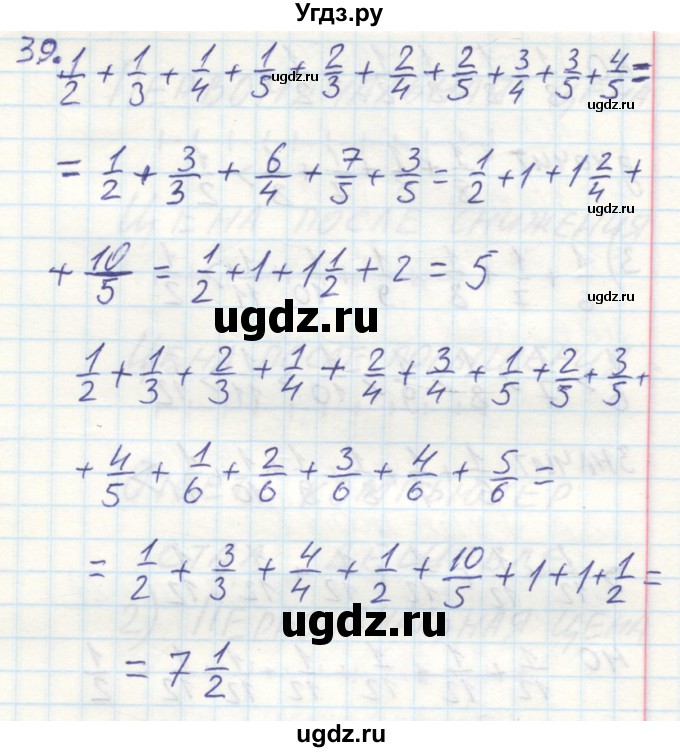 Угдз.ру
39. 1/2 + 1/3 + 1/4 + 1/5 + 2/3 + 2/4 + 2/5 + 3/4 + 3/5 + 4/5 =
ugdz.ru
ugdz.ru
= 1/2 + 3/3 + 6/4 + 7/5 + 3/5 = 1/2 + 1 + 1 2/4 +
ugdz.ru
+ 10/5 = 1/2 + 1 + 1 1/2 + 2 = 5
ugdz.ru
ugdz.ru
1/2 + 1/3 + 2/3 + 1/4 + 2/4 + 3/4 + 1/5 + 2/5 + 3/5 +
+ 4/5 + 1/6 + 2/6 + 3/6 + 4/6 + 5/6 =
= 1/2 + 3/3 + 4/4 + 1/2 + 10/5 + 1 + 1 + 1/2 =
ugdz.ru
= 7 1/2
ugdz.ru